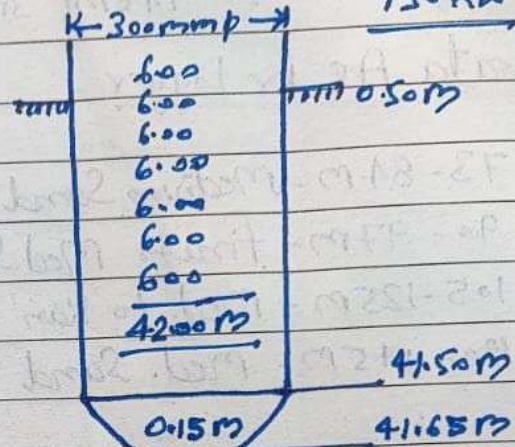 K-300mmφ->
6.00
6.00 0.50M
6.00
6.00
6.00
6.00
600
42.00M
41.50M
0.15M 41.65M